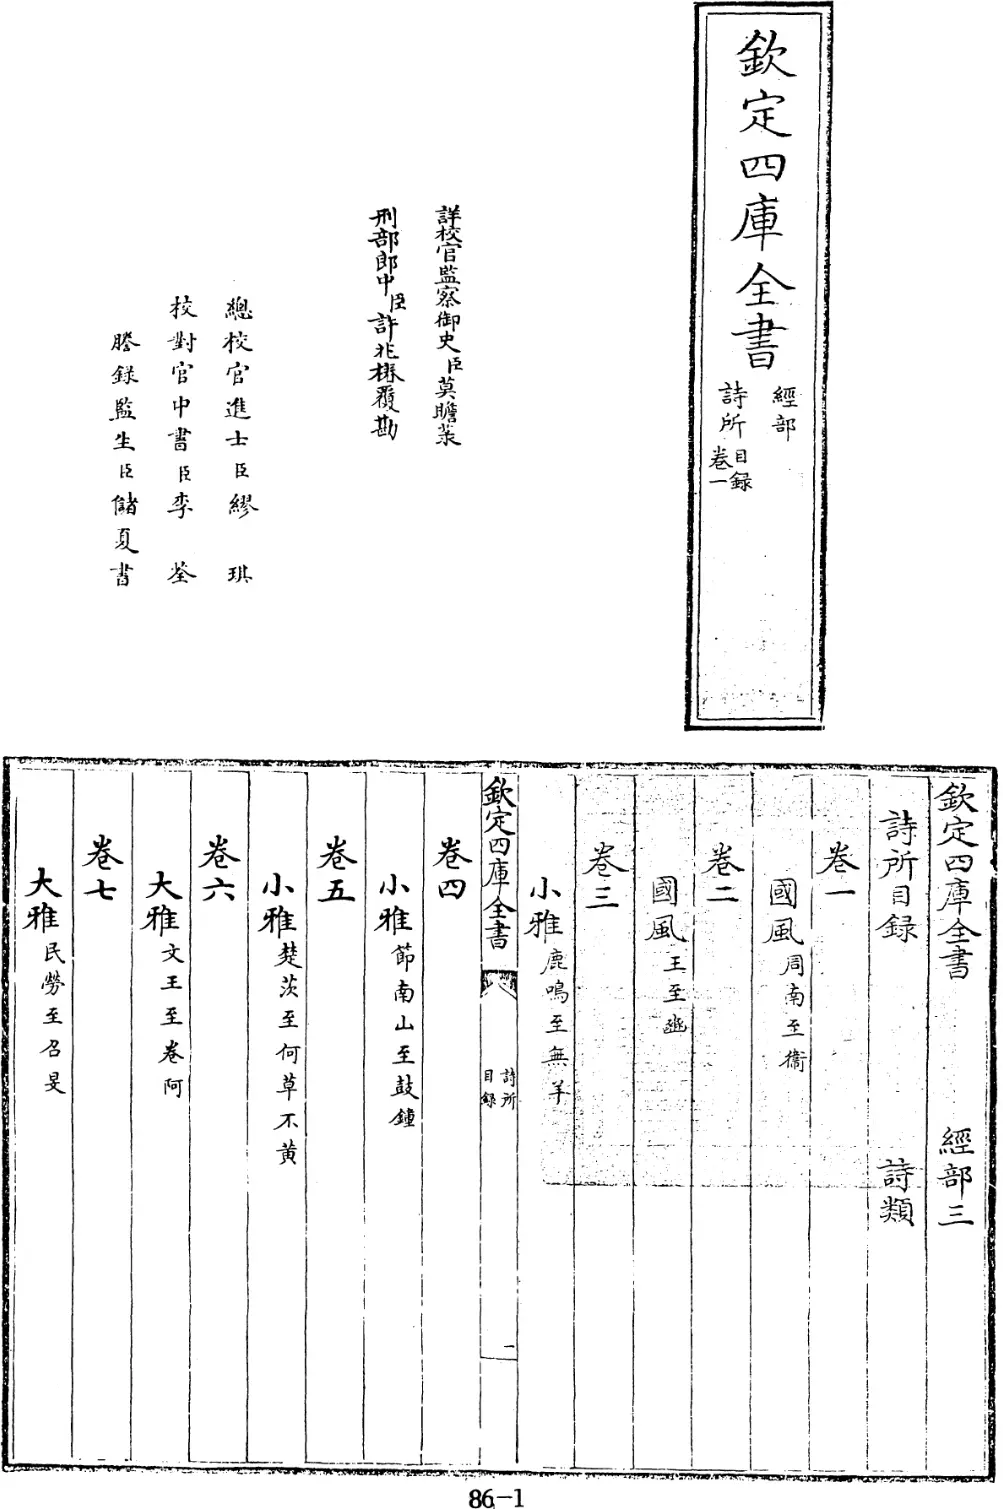 欽定四庫全書
經部
詩所
目録
卷一
詳校官監察御史臣莫瞻菉
刑部郎中臣許兆椿覆勘
總校官進士臣繆琪
校對官中書臣李荃
謄錄監生臣儲夏書
欽定四庫全書 經部三
詩所目録 詩類
卷一
國風周南至衞
卷二
國風王至豳
卷三
小雅鹿鳴至無羊
欽定四庫全書 詩所目録 一
卷四
小雅節南山至鼓鐘
卷五
小雅楚茨至何草不黄
卷六
大雅文王至卷阿
卷七
大雅民勞至召旻
86-1